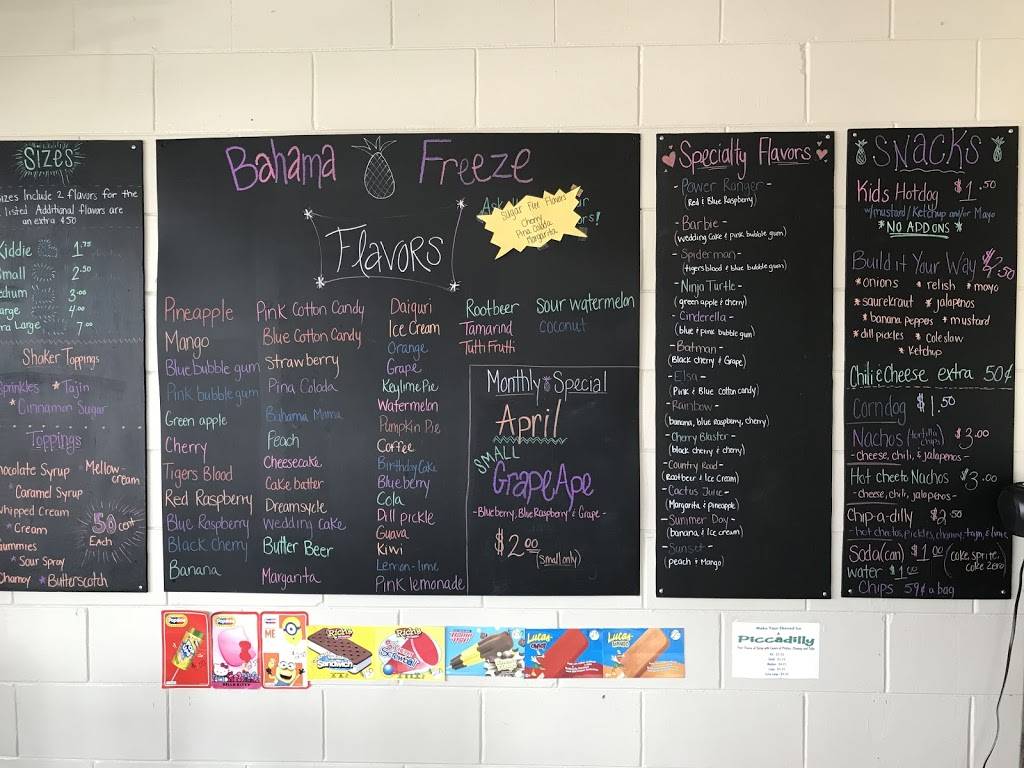 Sizes
Sizes Include 2 flavors for the
listed Additional flavors are
an extra $.50
Kiddie 1.75
Small 2.50
Medium 3.00
Large 4.00
Extra Large 7.00
Shaker Toppings
Sprinkles * Tajin
* Cinnamon Sugar
Toppings
Chocolate Syrup * Mellow-cream
* Caramel Syrup
Whipped Cream
* Cream
Gummies
* Sour Spray
Chamoy * Butterscotch
50 cent
Each
Bahama Freeze
Flavors
Sugar Free Flavors
Cherry
Pina Colada
Margarita
Pineapple
Mango
Blue bubble gum
Pink bubble gum
Green apple
Cherry
Tigers Blood
Red Raspberry
Blue Raspberry
Black Cherry
Banana
Pink Cotton Candy
Blue Cotton Candy
Strawberry
Pina Colada
Bahama Mama
Peach
Cheesecake
Cake batter
Dreamsycle
Wedding Cake
Butter Beer
Margarita
Daiquri
Ice Cream
Orange
Grape
Keylime Pie
Watermelon
Pumpkin Pie
Coffee
Birthday Cake
Blueberry
Cola
Dill pickle
Guava
Kiwi
Lemon-lime
Pink lemonade
Rootbeer
Tamarind
Tutti Frutti
Sour Watermelon
Coconut
Monthly Special
April
SMALL
Grape Ape
- Blueberry, Blue Raspberry & Grape -
$2.00
(small only)
Specialty Flavors
- Power Ranger -
(Red & Blue Raspberry)
- Barbie -
(wedding Cake & pink bubble gum)
- Spiderman -
(tigers blood & blue bubble gum)
- Ninja Turtle -
(green apple & cherry)
- Cinderella -
(blue & pink bubble gum)
- Batman -
(Black cherry & Grape)
- Elsa -
(Pink & Blue cotton candy)
- Rainbow -
(banana, blue Raspberry, cherry)
- Cherry Blaster -
(black cherry & cherry)
- Country Road -
(Rootbeer & Ice Cream)
- Cactus Juice -
(Margarita & pineapple)
- Summer Day -
(banana & Ice cream)
- Sunset -
(peach & Mango)
SNACKS
Kids Hotdog $1.50
w/mustard/Ketchup and/or Mayo
*NO ADD ONS *
Build it Your Way $2.50
* onions * relish * mayo
* saurekraut * jalapenos
* banana peppers * mustard
* dill pickles * Coleslaw
* Ketchup
Chili & Cheese extra 50¢
Corndog $1.50
Nachos (tortilla chips) $3.00
- cheese, chili, & jalapenos -
Hot cheeto Nachos $3.00
- cheese, chili, jalapenos -
Chip-a-dilly $2.50
hot cheetos, pickles, chamoy, tajin, & lime
Soda (can) $1.00 (coke, sprite, coke zero)
water $1.00
Chips 59¢ a bag
HELLO KITTY
ME
Rich's
Sandwich
Rich's
Screwball
Lucas
Lucas
Make Your Shaved Ice
A
Piccadilly